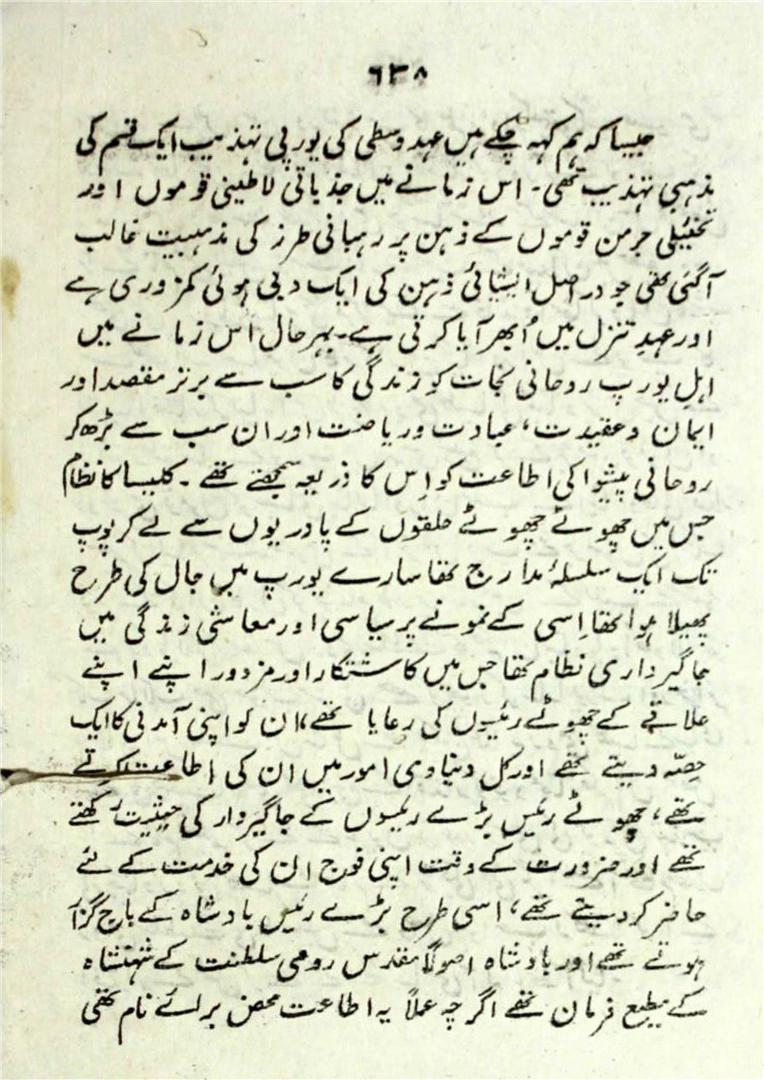 ۶۳۸
جیسا کہ ہم کہہ چکے ہیں عہد وسطیٰ کی یورپی تہذیب ایک قسم کی
مذہبی تہذیب تھی۔ اس زمانے میں جذباتی لاطینی قوموں اور
تخئیلی جرمن قوموں کے ذہن پر رہبانی طرز کی مذہبیت غالب
آگئی تھی جو دراصل ایشیائی ذہن کی ایک دبی ہوئی کمزوری ہے
اور عہدِ تنزل میں اُبھر آیا کرتی ہے۔ بہرحال اُس زمانے میں
اہلِ یورپ روحانی نجات کو زندگی کا سب سے برتر مقصد اور
ایمان و عقیدت، عبادت و ریاضت اور ان سب سے بڑھ کر
روحانی پیشوا کی اطاعت کو اِس کا ذریعہ سمجھتے تھے۔ کلیسا کا نظام
جس میں چھوٹے چھوٹے حلقوں کے پادریوں سے لے کر پوپ
تک ایک سلسلۂ مدارج تھا سارے یورپ میں جال کی طرح
پھیلا ہوا تھا اِسی کے نمونے پر سیاسی اور معاشی زندگی میں
جاگیرداری نظام تھا جس میں کاشتکار اور مزدور اپنے اپنے
علاقے کے چھوٹے رئیسوں کی رعایا تھے، ان کو اپنی آمدنی کا ایک
حصّہ دیتے تھے اور کل دنیاوی امور میں ان کی اطاعت کرتے
تھے، چھوٹے رئیس بڑے رئیسوں کے جاگیردار کی حیثیت رکھتے
تھے اور ضرورت کے وقت اپنی فوج ان کی خدمت کے لئے
حاضر کر دیتے تھے، اسی طرح بڑے رئیس بادشاہ کے باج گزار
ہوتے تھے اور بادشاہ اصولاً مقدس رومی سلطنت کے شہنشاہ
کے مطیع فرمان تھے اگرچہ عملاً یہ اطاعت محض برائے نام تھی